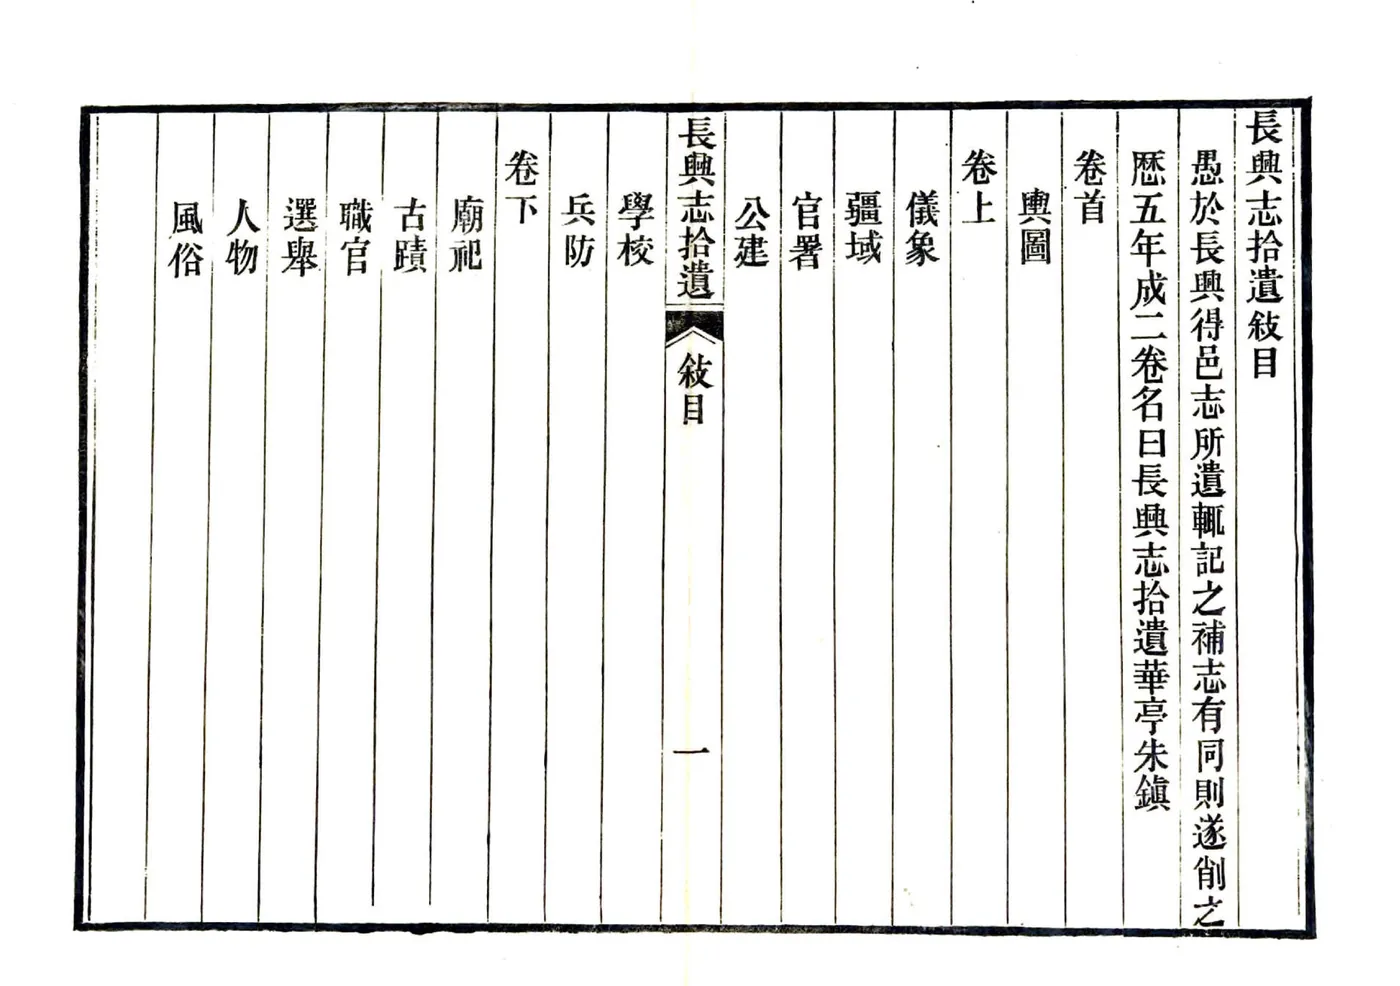 長興志拾遺敍目
愚於長興得邑志所遺輒記之補志有同則遂削之
厯五年成二卷名曰長興志拾遺華亭朱鎮
卷首
輿圖
卷上
儀象
疆域
官署
公建
長興志拾遺 敍目 一
學校
兵防
卷下
廟祀
古蹟
職官
選舉
人物
風俗